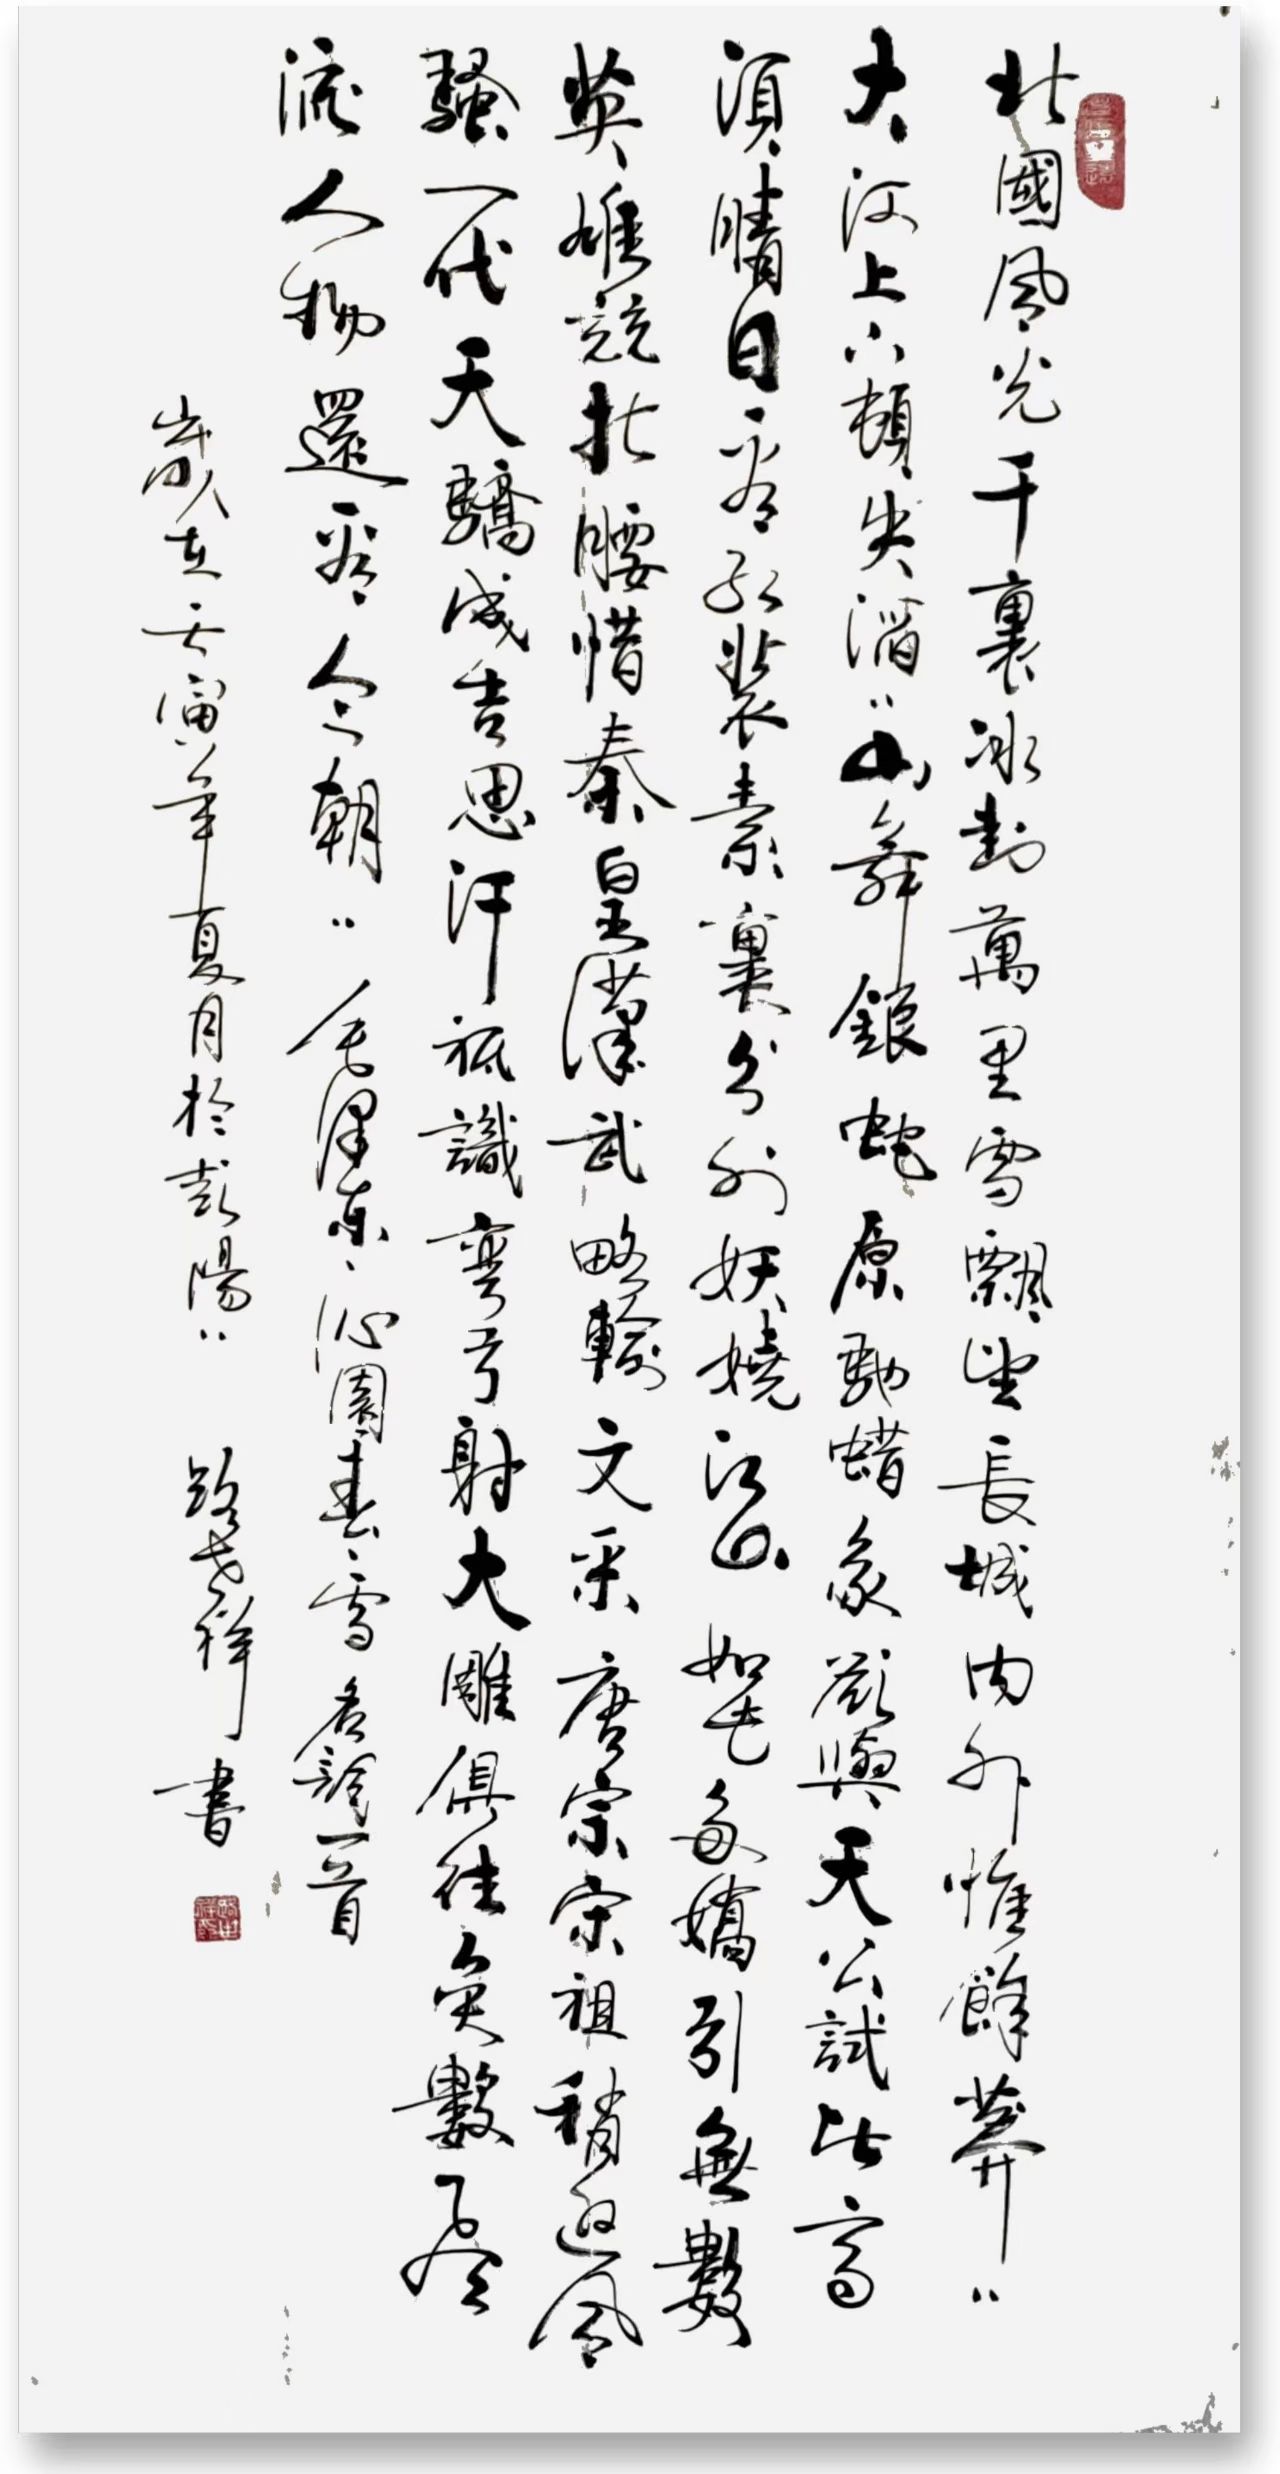 北國風光千裏冰封萬里雪飄望長城內外惟餘莽〻
大河上下頓失滔〻山舞銀蛇原馳蜡象欲與天公試比高
須晴日看紅裝素裹分外妖嬈江山如此多嬌引無數
英雄競折腰惜秦皇漢武略輸文采唐宗宋祖稍遜風
騷一代天驕成吉思汗祗識彎弓射大雕俱往矣數風
流人物還看今朝〻毛澤東沁園春雪名詞一首
歲在壬寅年夏月於彭陽〻路 祥書